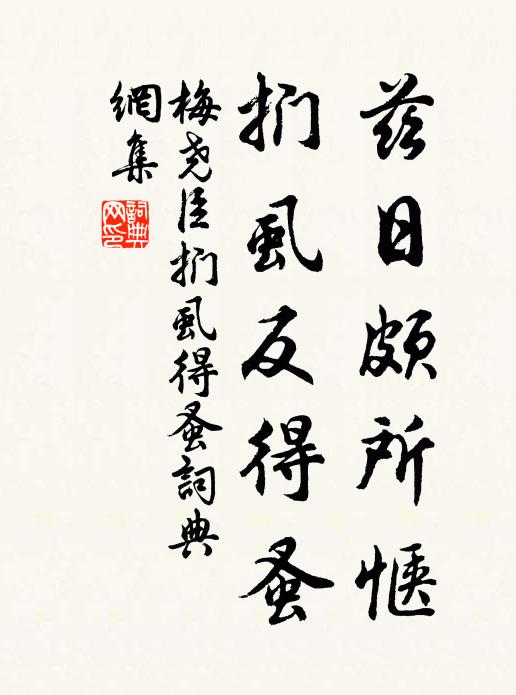 茲日頗所愜
捫虱反得蚤
梅尧臣捫虱得蚤詞典
網集
詞典
网印